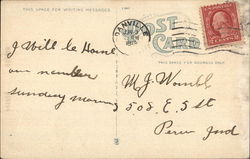 THIS SPACE FOR WRITING MESSAGES
POST
CARD
THIS SPACE FOR ADDRESS ONLY
DANVILLE
I Will be Home
on number
sunday morning
M J Womble
508 E. 5 St
Peru Ind